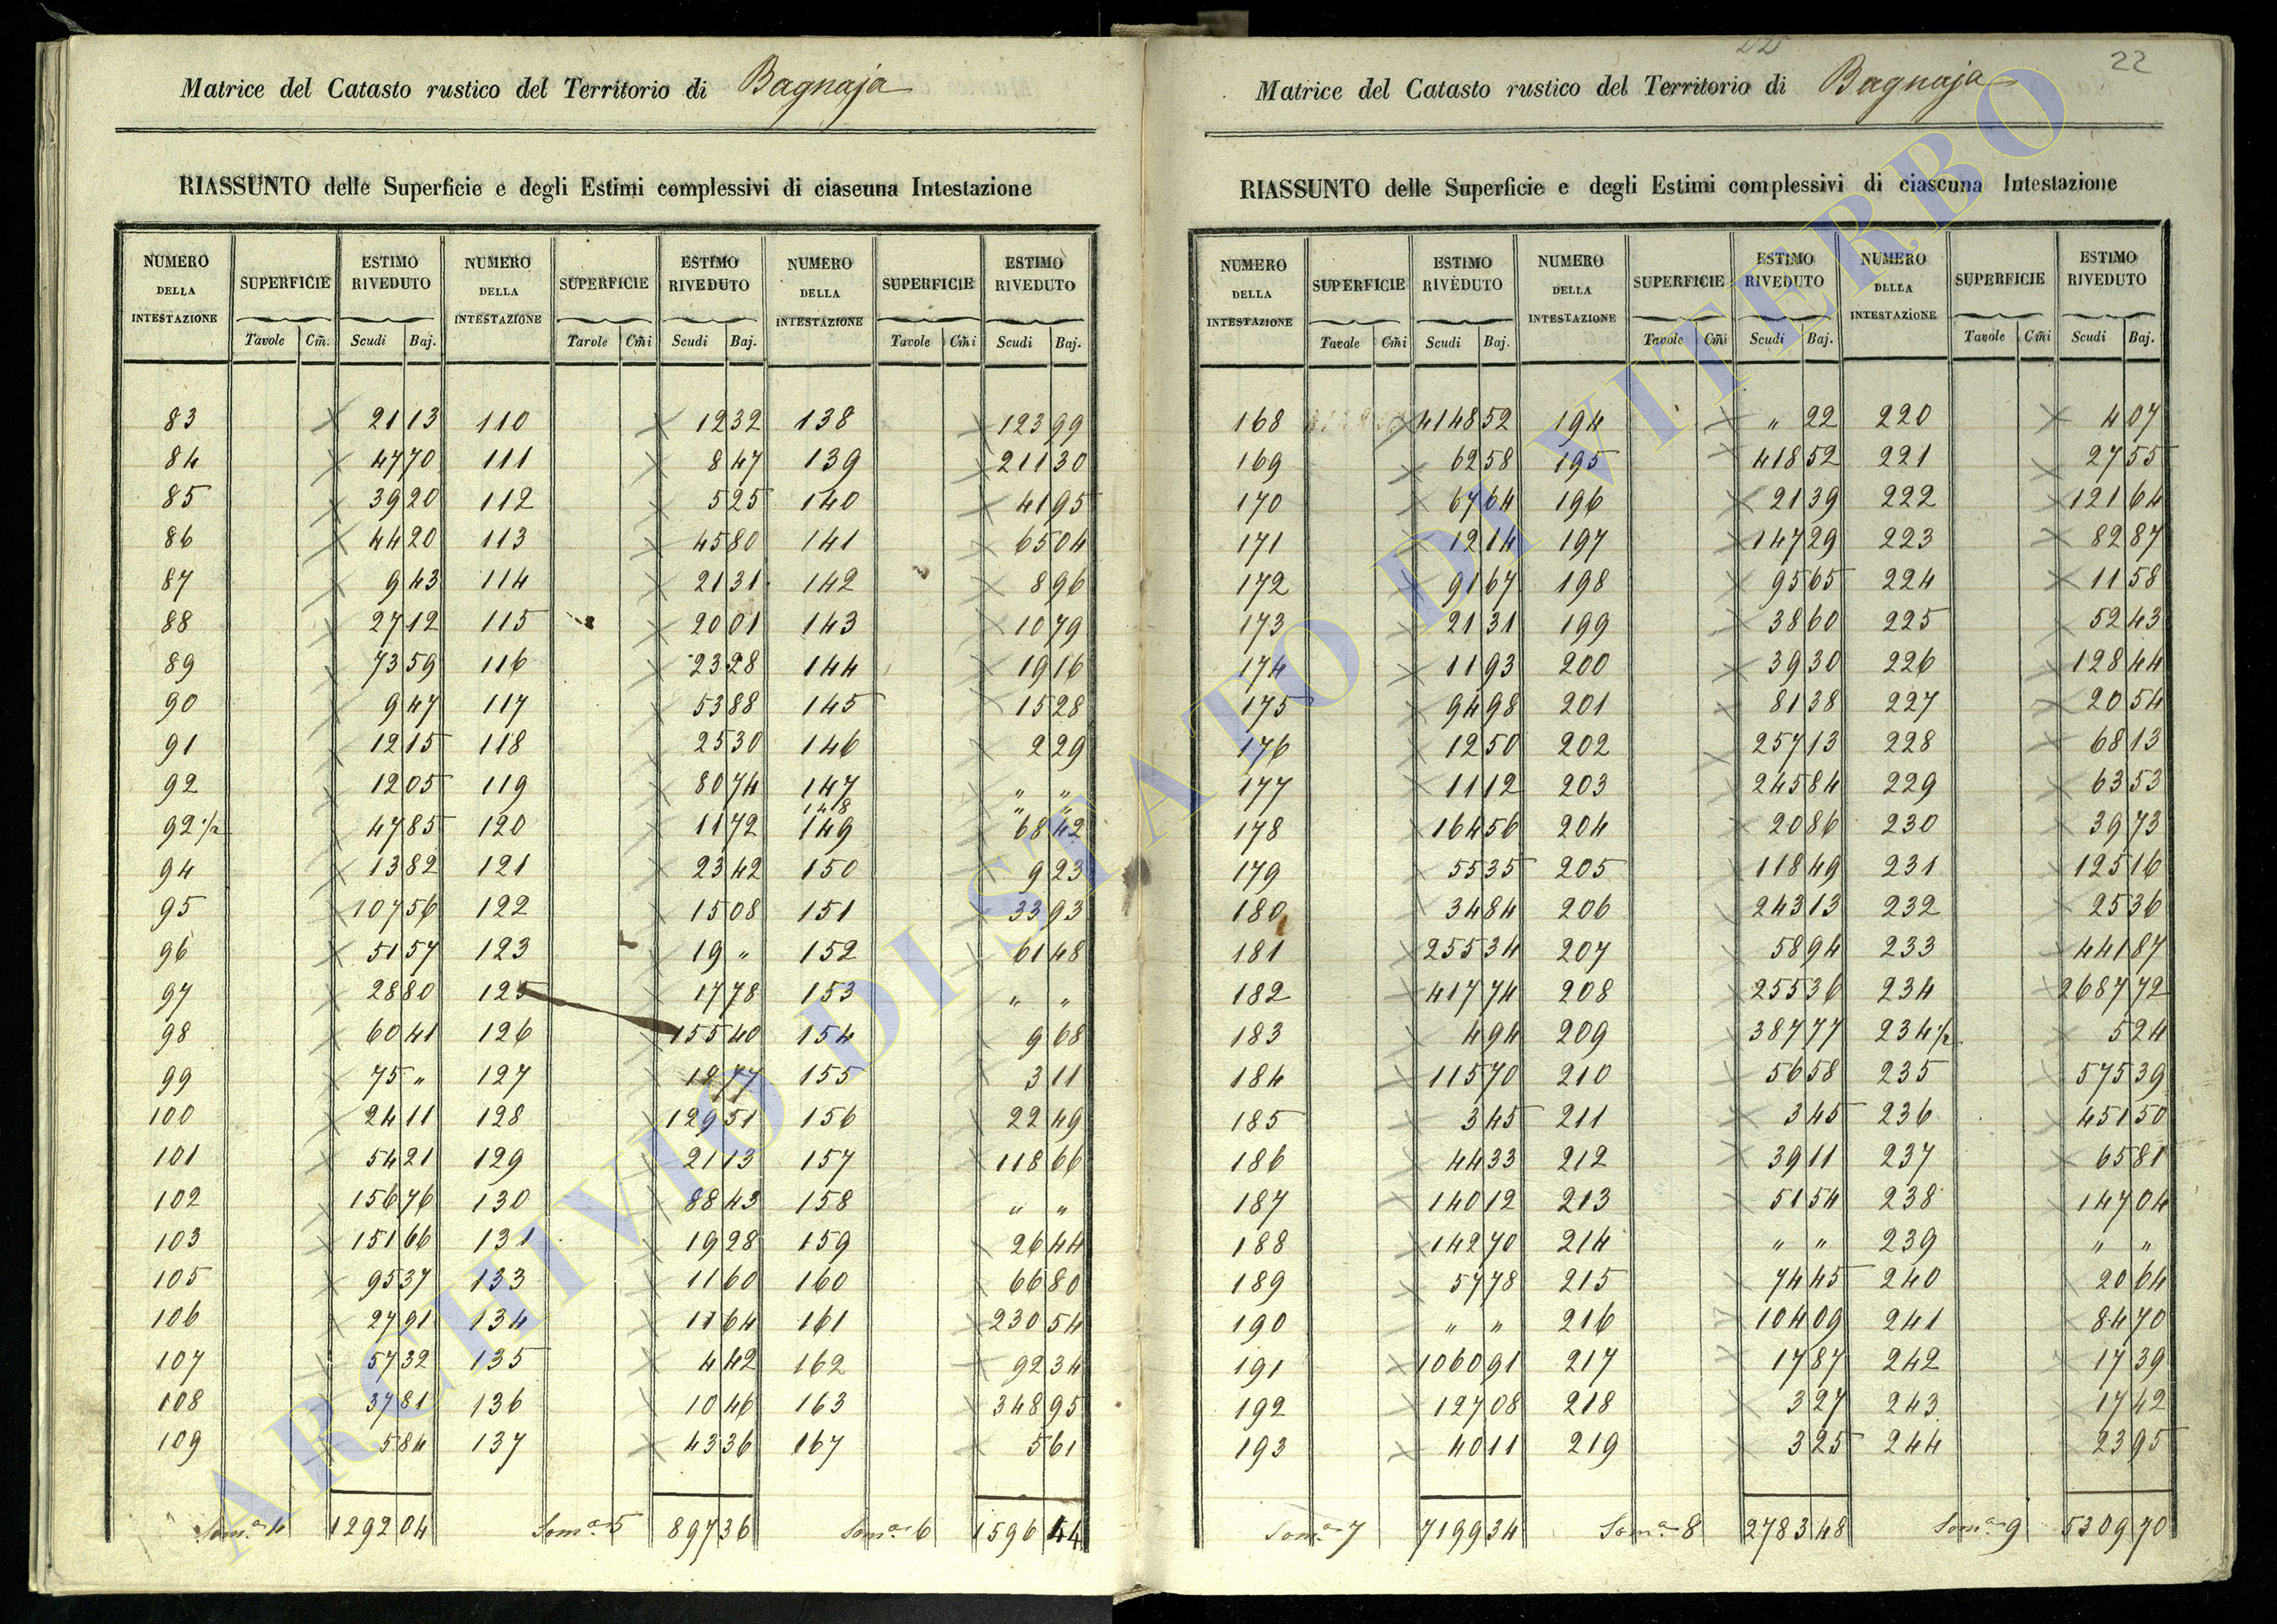 22
22
Matrice del Catasto rustico del Territorio di Bagnaja
RIASSUNTO delle Superficie e degli Estimi complessivi di ciascuna Intestazione
NUMERO DELLA INTESTAZIONE SUPERFICIE ESTIMO RIVEDUTO NUMERO DELLA INTESTAZIONE SUPERFICIE ESTIMO RIVEDUTO NUMERO DELLA INTESTAZIONE SUPERFICIE ESTIMO RIVEDUTO
Tavole Cm̃. Scudi Baj. Tavole Cm̃i Scudi Baj. Tavole Cm̃i Scudi Baj.
83 21 13 110 12 32 138 123 99
84 47 70 111 8 47 139 211 30
85 39 20 112 5 25 140 41 95
86 44 20 113 45 80 141 65 04
87 9 43 114 21 31 142 8 96
88 27 12 115 20 01 143 10 79
89 73 59 116 23 28 144 19 16
90 9 47 117 53 88 145 15 28
91 12 15 118 25 30 146 2 29
92 12 05 119 80 74 147 " "
148 " "
92 1/2 47 85 120 11 72 149 68 42
94 13 82 121 23 42 150 9 23
95 107 56 122 15 08 151 33 93
96 51 57 123 19 " 152 61 48
97 28 80 125 17 78 153 " "
98 60 41 126 155 40 154 9 68
99 75 " 127 19 77 155 3 11
100 24 11 128 129 51 156 22 49
101 54 21 129 21 13 157 118 66
102 156 76 130 88 43 158 " "
103 151 66 131 19 28 159 26 44
105 95 37 133 11 60 160 66 80
106 27 91 134 11 64 161 230 54
107 57 32 135 4 42 162 92 34
108 37 81 136 10 46 163 348 95
109 5 84 137 43 36 167 5 61
Som.a 4 1292 04 Som.a 5 897 36 Som.a 6 1596 44
Matrice del Catasto rustico del Territorio di Bagnaja
RIASSUNTO delle Superficie e degli Estimi complessivi di ciascuna Intestazione
NUMERO DELLA INTESTAZIONE SUPERFICIE ESTIMO RIVEDUTO NUMERO DELLA INTESTAZIONE SUPERFICIE ESTIMO RIVEDUTO NUMERO DELLA INTESTAZIONE SUPERFICIE ESTIMO RIVEDUTO
Tavole Cm̃i Scudi Baj. Tavole Cm̃i Scudi Baj. Tavole Cm̃i Scudi Baj.
168 4148 52 194 " 22 220 4 07
169 62 58 195 418 52 221 27 55
170 67 64 196 21 39 222 121 64
171 12 14 197 147 29 223 82 87
172 91 67 198 95 65 224 11 58
173 21 31 199 38 60 225 52 43
174 11 93 200 39 30 226 128 44
175 94 98 201 81 38 227 20 54
176 12 50 202 257 13 228 68 13
177 11 12 203 245 84 229 63 53
178 164 56 204 20 86 230 39 73
179 55 35 205 118 49 231 125 16
180 34 84 206 243 13 232 25 36
181 255 34 207 58 94 233 441 87
182 417 74 208 255 36 234 2687 72
183 4 94 209 387 77 234 1/2 5 24
184 115 70 210 56 58 235 575 39
185 3 45 211 3 45 236 451 50
186 44 33 212 39 11 237 65 81
187 140 12 213 51 54 238 147 04
188 142 70 214 " " 239 " "
189 57 78 215 74 45 240 20 64
190 " " 216 104 09 241 84 70
191 1060 91 217 17 87 242 17 39
192 127 08 218 3 27 243 17 42
193 40 11 219 3 25 244 23 95
Som.a 7 7199 34 Som.a 8 2783 48 Som.a 9 5309 70
ARCHIVIO DI STATO DI VITERBO